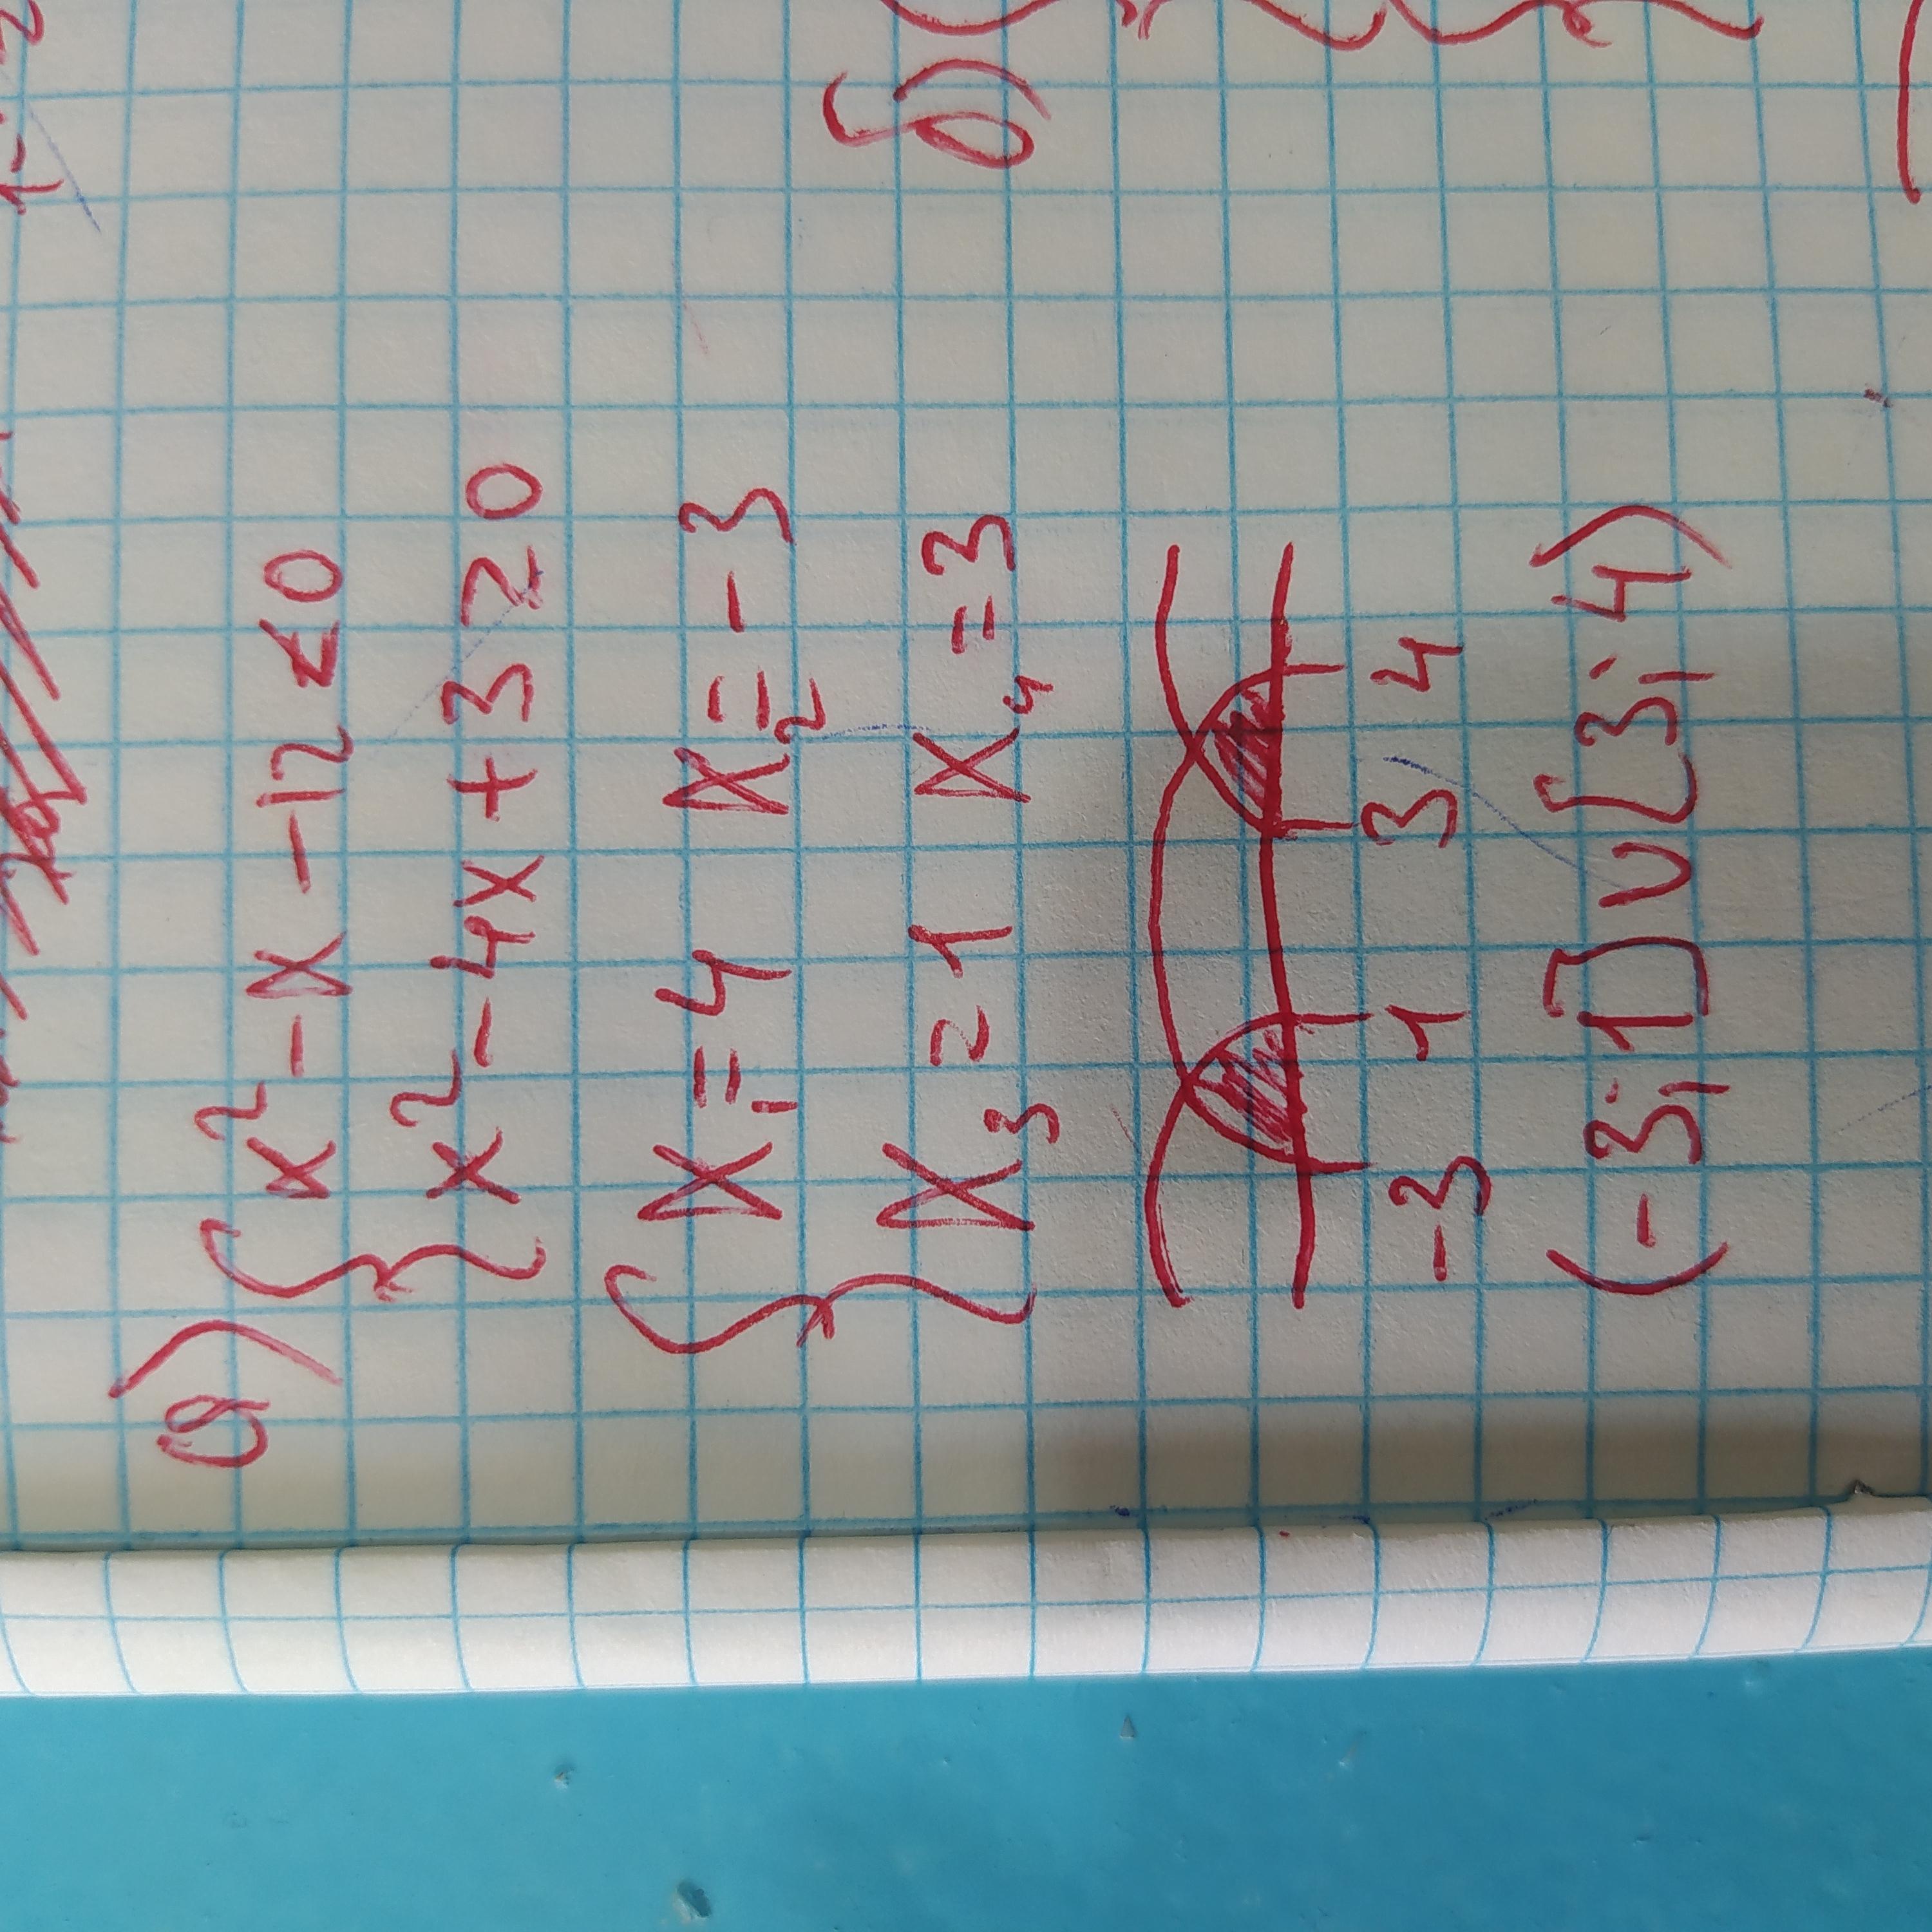 а) { x² - x - 12 ≤ 0
x² - 4x + 3 ≥ 0
{ x₁ = 4 x₂ = -3
x₃ = 1 x₄ = 3
-3 1 3 4
(-3; 1] ∪ [3; 4)
б) {